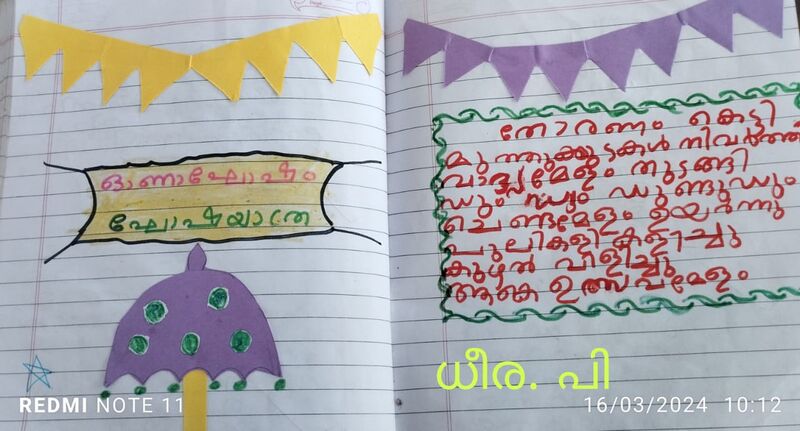 ഓണാഘോഷം
ഘോഷയാത്ര
തോരണം കെട്ടി
മുത്തുക്കുടകൾ നിവർത്തി
വാദ്യമേളം തുടങ്ങി
ഡും ഡും ഡുണ്ടുഡും
ചെണ്ടമേളം ഉയർന്നു
പുലികളി കളിച്ചു
കുഴൽ വിളിച്ചു
ആകെ ഉത്സവമേളം
ധീര. പി
REDMI NOTE 11
16/03/2024 10:12